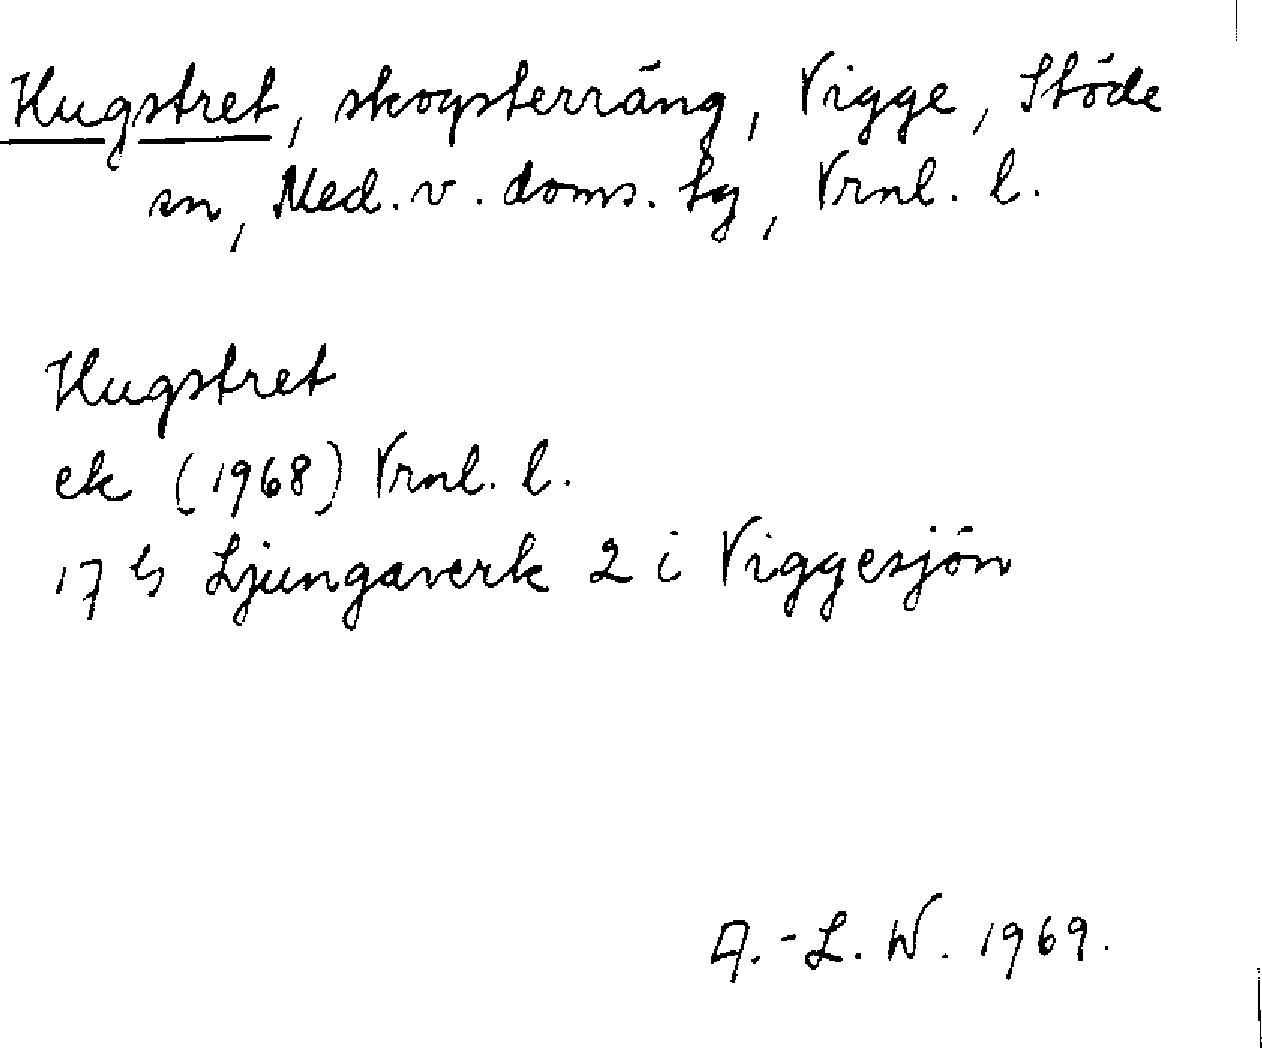 Hugstret, skogsterräng, Vigge, Stöde
sn, Med. v. doms. tg, Vrnl. l.
Hugstret
ek (1968) Vrnl. l.
17 G Ljungaverk 2 i Viggesjön
A.-L. W. 1969.